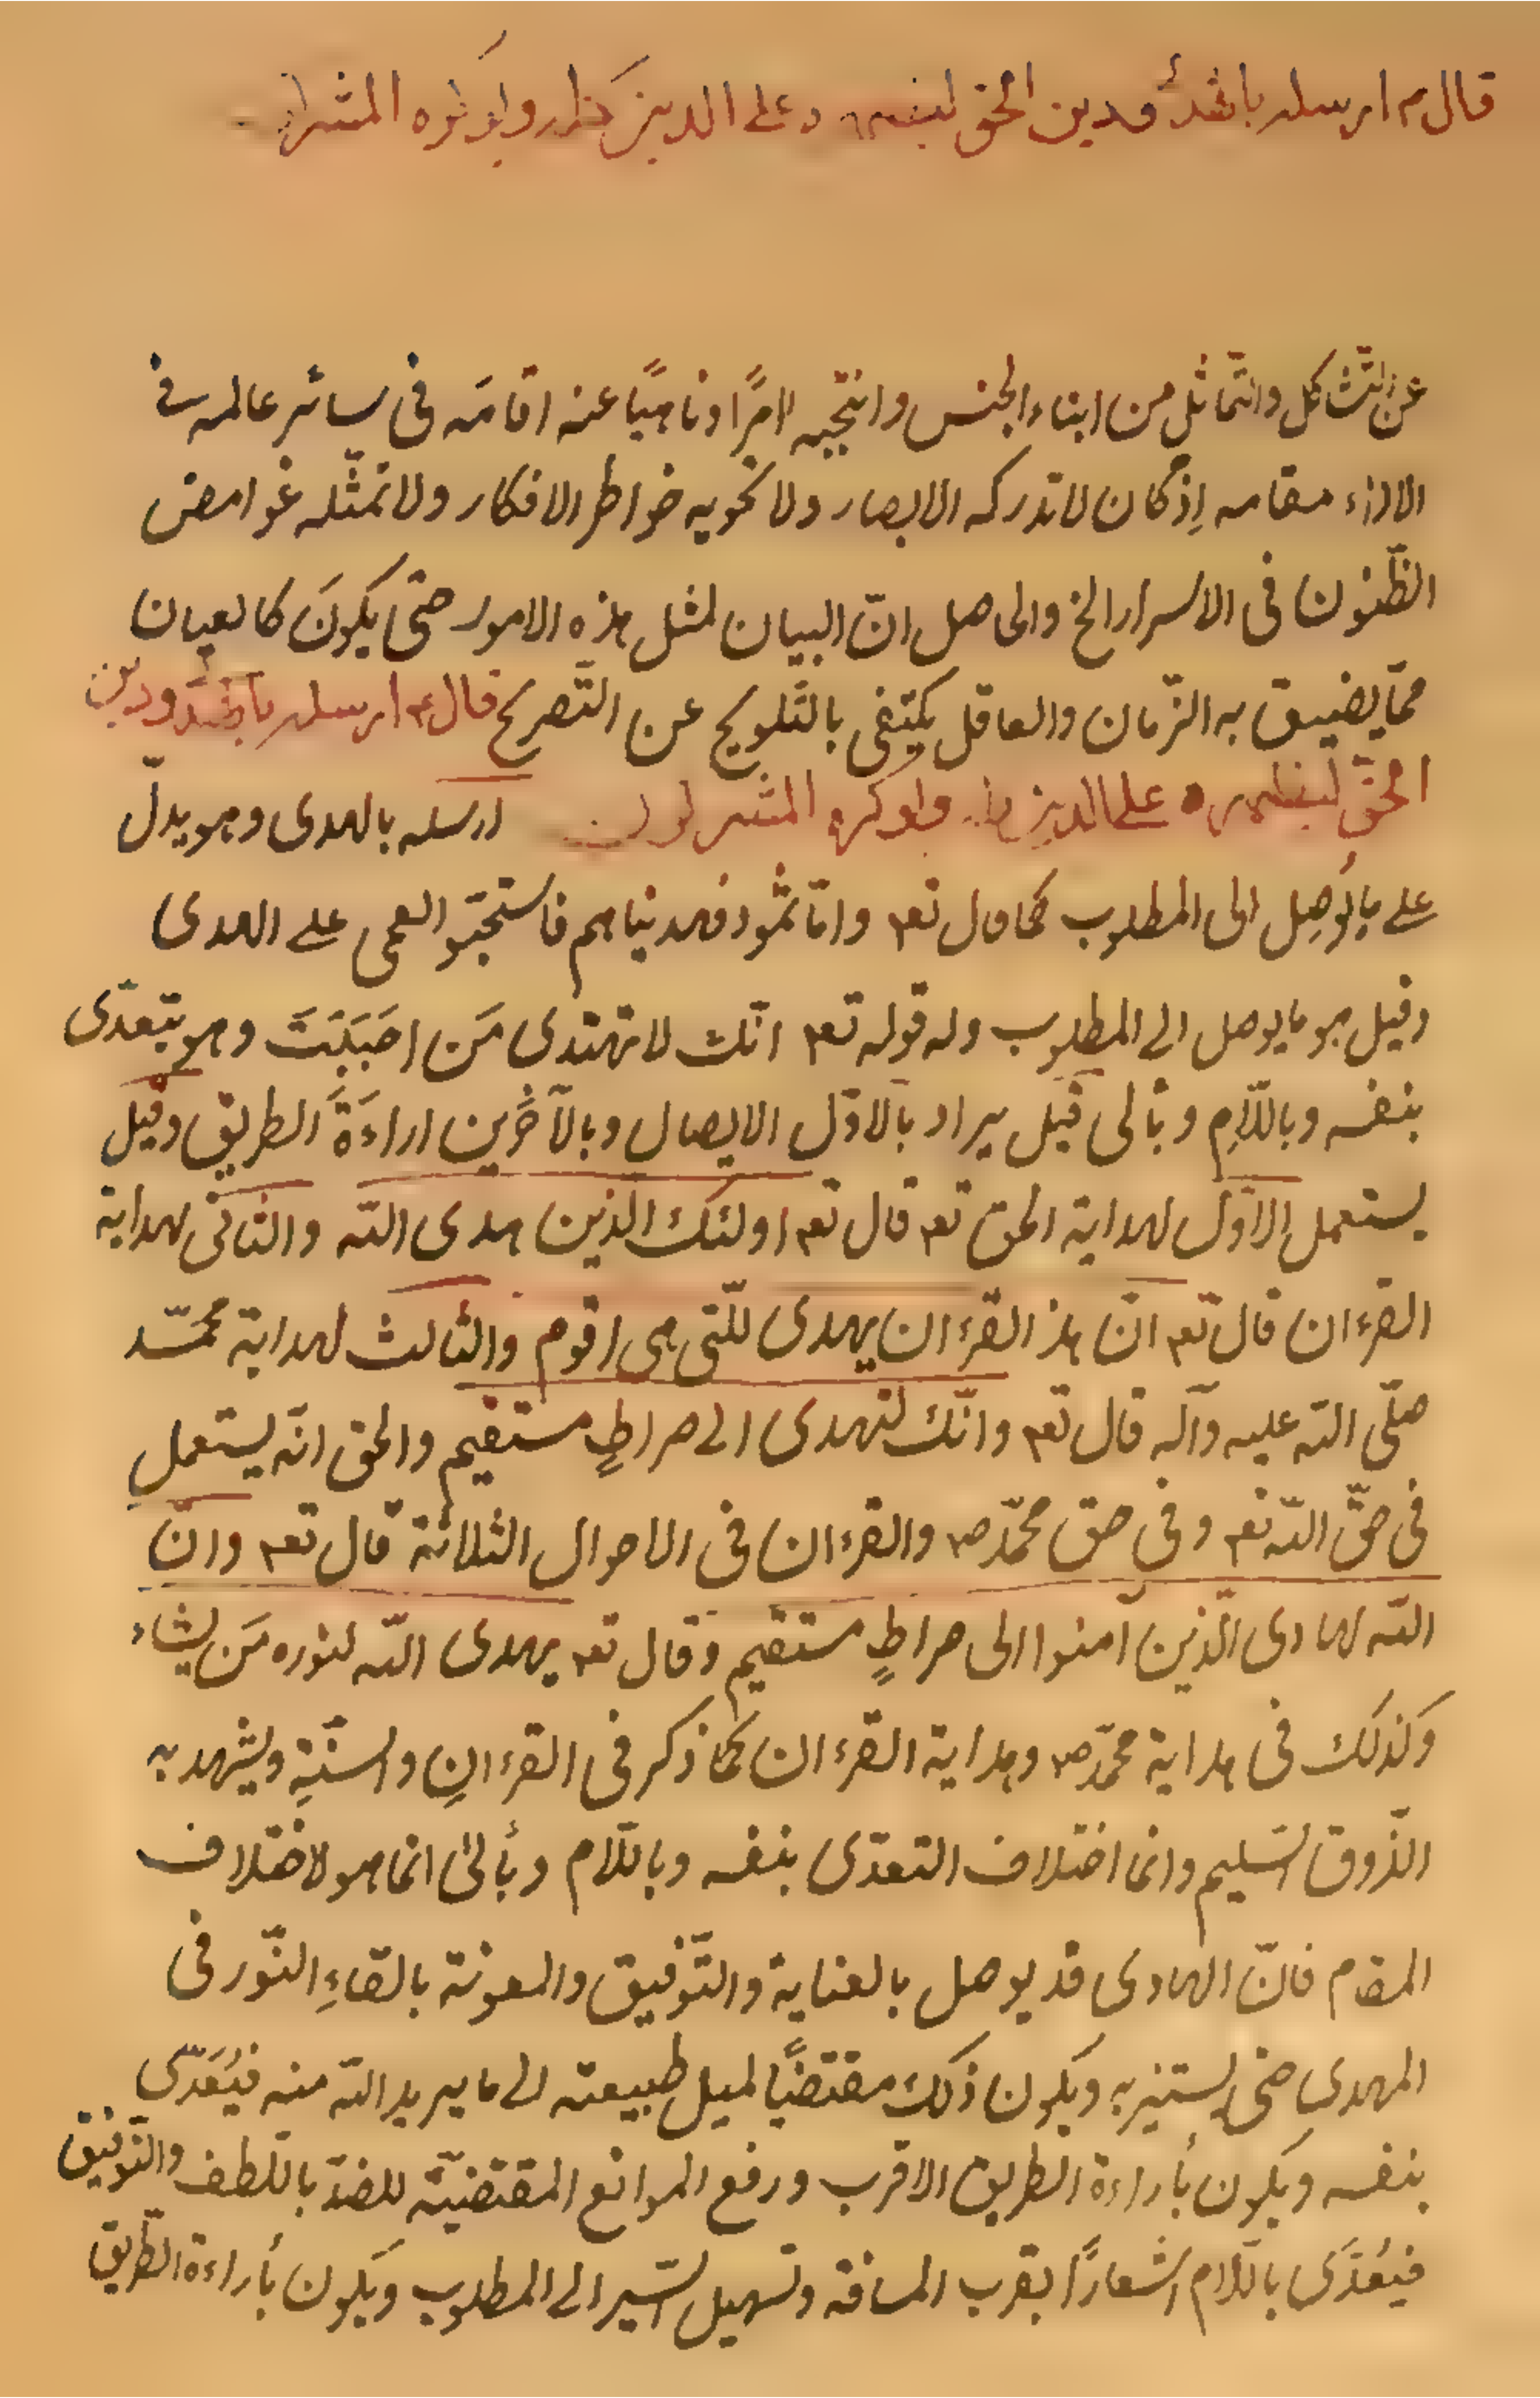 قال م ارسله بالهدى ودين الحق ليظهره على الدين كله ولو كره المشر
عن التّشاكل والتّماثل من ابناء الجنس وانتجبه امرًا وناهيًا عنه اقامَه فى سائر عالمه فى
الاداء مقامه اِذ كان لا تدركه الابصار ولا تحويه خواطر الافكار ولا تمثّله غوامض
الظّنون فى الاسرار الخ والحاصل انّ البيان لمثل هذه الامور حتّى يكونَ كالعيان
ممّا يضيق به الزّمان والعاقل يكتفى بالتّلويح عن التّصريح قال ع ارسله بالهدى ودين
الحقّ ليظهره على الدين كله ولو كره المشركون ارسله بالهدى وهو يدلّ
على ما يُوصِل الى المطلوب كما قال تعم وامّا ثمود فهديناهم فاستحبّو العمى على الهدى
وقيل هو ما يوصل الى المطلوب وله قوله تعم انّك لا تهتدى مَن احبَبَتَ وهو يتعدّى
بنفسه وباللّامِ وبألى قيل يراد بالاوّل الايصال وبالآخَرين اراءَةَ الطريق وقيل
يستعمل الاوّل لهداية الحق تعم قال تعم اولئك الّذين هدى اللّه والثانى لهداية
القرءان قال تعم انّ هذ القرءان يهدى للّتى هى اقوم والثالث لهداية محمّد
صلّى اللّه عليه وآله قال تعم وانّك لتهدى الى صراطٍ مستقيم والحق انّه يستعمل
فى حقّ اللّه تعم وفى حق محمّد ص والقرءان فى الاحوال الثلاثة قال تعم وانّ
اللّه لهادى الّذين آمنوا الى صراطٍ مستقيم وقال تعم يهدى اللّه لنوره مَن يشاء
وكذلك فى هداية محمّد ص وهداية القرءان كما ذكر فى القرءانِ والسنّةِ ويشهد به
الذّوق السّليم وانما اختلاف التعدّى بنفسه وباللّام وبألى انما هو لاختلاف
المقام فانّ الهادى قد يوصل بالعناية والتّوفيق والمعونة بالقاءِ النّور فى
المهدى حتى يستنير به ويكون ذلك مقتضيًا لميل طبيعته الى ما يريد اللّه منه فيُعَدّى
بنفسه ويكون بأراءة الطريق الاقرب ورفع الموانع المقتضيّة للضدّ باللّطف والتّوفيق
فيُعدَّى باللّام اشعارًا بقرب المسافة وتسهيل السّير الى المطلوب ويكون بأراءة الطّريق